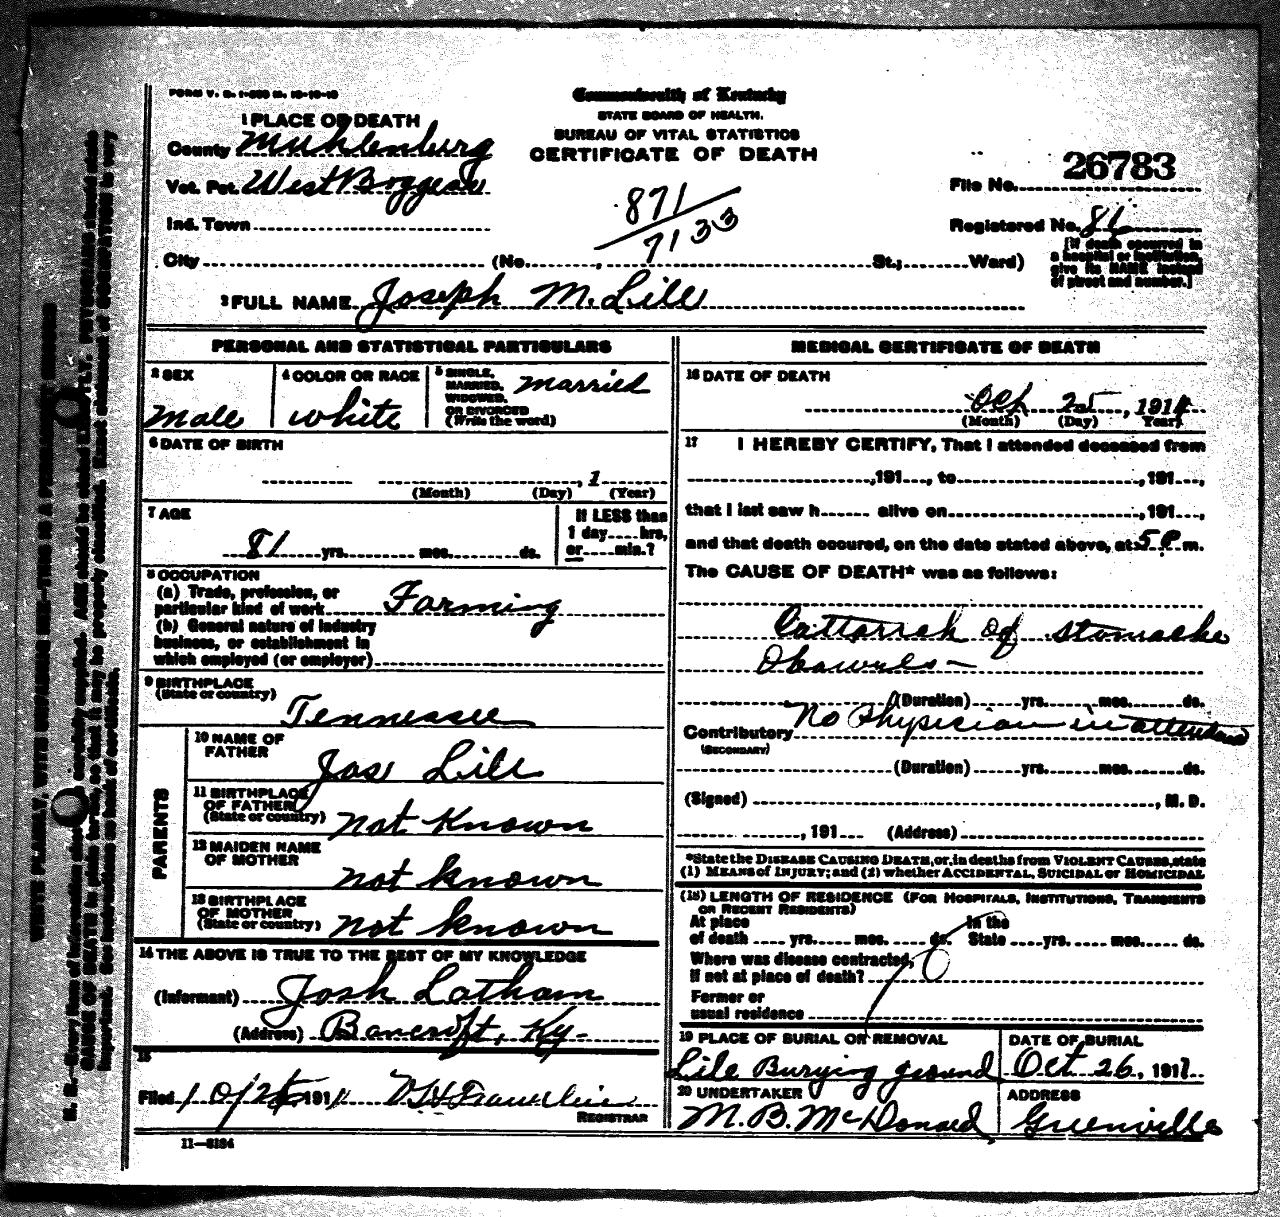 FORM V. S. 1-
Commonwealth of Kentucky
STATE BOARD OF HEALTH.
BUREAU OF VITAL STATISTICS
CERTIFICATE OF DEATH
1 PLACE OF DEATH
County Muhlenburg
Vot. Pct. West Boggess
Ind. Town
City (No. , St.; Ward)
871
7133
File No. 26783
Registered No. 81
[If death occurred in
a hospital or institution,
give its NAME instead
of street and number.]
2 FULL NAME Joseph M. Lile
PERSONAL AND STATISTICAL PARTICULARS
3 SEX
Male
4 COLOR OR RACE
white
5 SINGLE,
MARRIED,
WIDOWED,
OR DIVORCED
(Write the word)
married
6 DATE OF BIRTH
, 1
(Month) (Day) (Year)
7 AGE
81 yrs. mos. ds.
If LESS than
1 day hrs,
or min.?
8 OCCUPATION
(a) Trade, profession, or
particular kind of work Farming
(b) General nature of industry
business, or establishment in
which employed (or employer)
9 BIRTHPLACE
(State or country)
Tennessee
PARENTS
10 NAME OF
FATHER
Jas Lile
11 BIRTHPLACE
OF FATHER
(State or country) not Known
12 MAIDEN NAME
OF MOTHER
not known
13 BIRTHPLACE
OF MOTHER
(State or country) not known
14 THE ABOVE IS TRUE TO THE BEST OF MY KNOWLEDGE
(Informant) Josh Latham
(Address) Bancroft, Ky-
15
Filed 10/26 1911
REGISTRAR
11—8184
MEDICAL CERTIFICATE OF DEATH
16 DATE OF DEATH
Oct 25, 1911
(Month) (Day) Year)
17 I HEREBY CERTIFY, That I attended deceased from
, 191 , to , 191 ,
that I last saw h alive on , 191 ,
and that death occured, on the date stated above, at 5 P m.
The CAUSE OF DEATH* was as follows:
Cattarrah of stomache
& bowels—
(Duration) yrs. mos. ds.
Contributory No Physician in attendance
(SECONDARY)
(Duration) yrs. mos. ds.
(Signed) , M. D.
, 191 (Address)
*State the DISEASE CAUSING DEATH, or, in deaths from VIOLENT CAUSES, state
(1) MEANS of INJURY; and (2) whether ACCIDENTAL, SUICIDAL or HOMICIDAL
(18) LENGTH OF RESIDENCE (FOR HOSPITALS, INSTITUTIONS, TRANSIENTS
OR RECENT RESIDENTS)
At place In the
of death yrs. mos. ds. State yrs. mos. ds.
Where was disease contracted,
If not at place of death?
Former or
usual residence
19 PLACE OF BURIAL OR REMOVAL
Lile Burying ground
DATE OF BURIAL
Oct 26, 1911
20 UNDERTAKER
M. B. McDonald
ADDRESS
Greenville
WRITE PLAINLY, WITH UNFADING INK—THIS IS A PERMANENT RECORD
N. B.—Every item of information should be carefully supplied. AGE should be stated EXACTLY. PHYSICIANS should state
CAUSE OF DEATH in plain terms, so that it may be properly classified. Exact statement of OCCUPATION is very
important. See instructions on back of certificate.